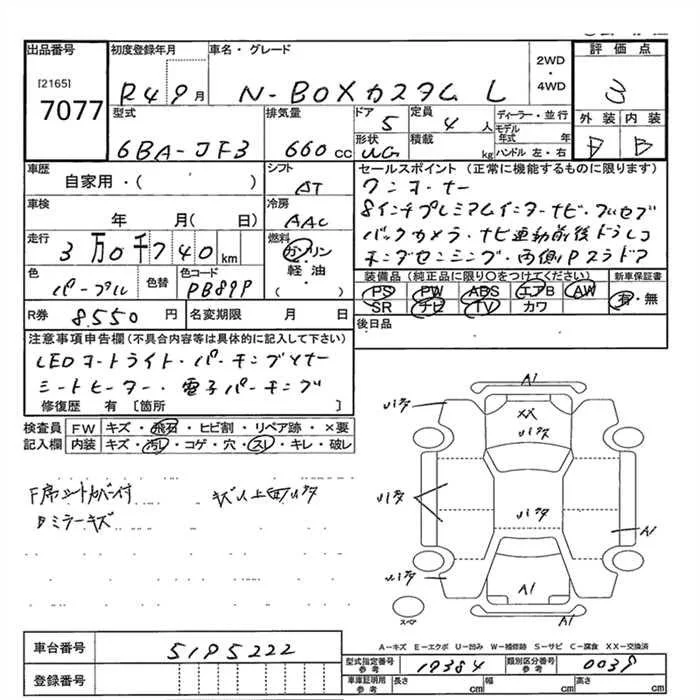 出品番号 初度登録年月 車名・グレード 2WD・4WD 評価点
[2165]
7077
R4 9月 N-BOXカスタム L 3
型式 排気量 ドア 5 定員 4人 ディーラー・並行 外装 内装
モデル年式 年
6BA-JF3 660cc 形状 UG 積載 kg ハンドル 左・右 B B
車歴 シフト セールスポイント(正常に機能するものに限ります)
自家用・( ) AT ワンオーナー
車検 冷房 8インチプレミアムインターナビ・フルセグ
年 月( 日) AAC バックカメラ・ナビ連動前後ドラレコ
走行 燃料 ホンダセンシング・両側Pスラドア
3万0千740km ガソリン・軽油・( )
装備品(純正品に限り○をつけてください) 新車保証書
色 色替 色コード PS PW ABS エアB AW 有・無
パープル PB89P SR ナビ TV カワ
R券 8,550円 名変期限 月 日 後日品
注意事項申告欄(不具合内容等は具体的に記入して下さい)
LEDオートライト・パーキングソナー
シートヒーター・電子パーキング
修復歴 有 [箇所 ]
検査員記入欄 FW キズ・飛石・ヒビ割・リペア跡・×要
内装 キズ・汚レ・コゲ・穴・スレ・キレ・破レ
F席シートカバー付
Bミラーキズ
A1
XX
A1
A1
A1
スペア
A-キズ E-エクボ U-凹み W-補修跡 S-サビ C-腐食 XX-交換済
車台番号 5195222
型式指定番号 参考 19384 類別区分番号 参考 0039
登録番号
車庫証明用 参考 長さ cm 幅 cm 高さ cm